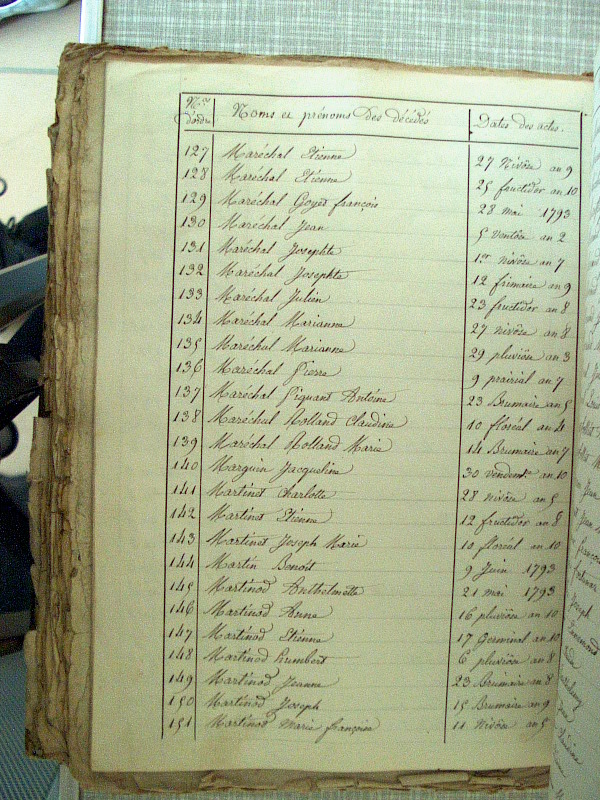 Nos d'ordre Noms et prénoms des décédés Dates des actes.
127 Maréchal Etienne 27 Nivôse an 9
128 Maréchal Etienne 25 fructidor an 10
129 Maréchal Goyet françois 28 mai 1793
130 Maréchal Jean 5 Ventôse an 2
131 Maréchal Josephte 1er nivôse an 7
132 Maréchal Josephte 12 frimaire an 9
133 Maréchal Julien 23 fructidor an 8
134 Maréchal Marianne 27 nivôse an 8
135 Maréchal Marianne 29 pluviôse an 3
136 Maréchal Pierre 9 prairial an 7
137 Maréchal Piquant Antoine 23 Brumaire an 5
138 Maréchal Rolland Claudine 10 floréal an 4
139 Maréchal Rolland Marie 14 Brumaire an 7
140 Marguin Jacqueline 30 vendem. an 10
141 Martinet Charlotte 28 nivôse an 5
142 Martinet Etienne 12 fructidor an 8
143 Martinet Joseph Marie 10 floréal an 10
144 Martin Benoît 9 Juin 1793
145 Martinod Anthelmette 21 mai 1793
146 Martinod Anne 16 pluviôse an 10
147 Martinod Etienne 17 Germinal an 10
148 Martinod humbert 6 pluviôse an 8
149 Martinod Jeanne 23 Brumaire an 8
150 Martinod Joseph 15 Brumaire an 9
151 Martinod Marie françoise 11 Nivôse an 5